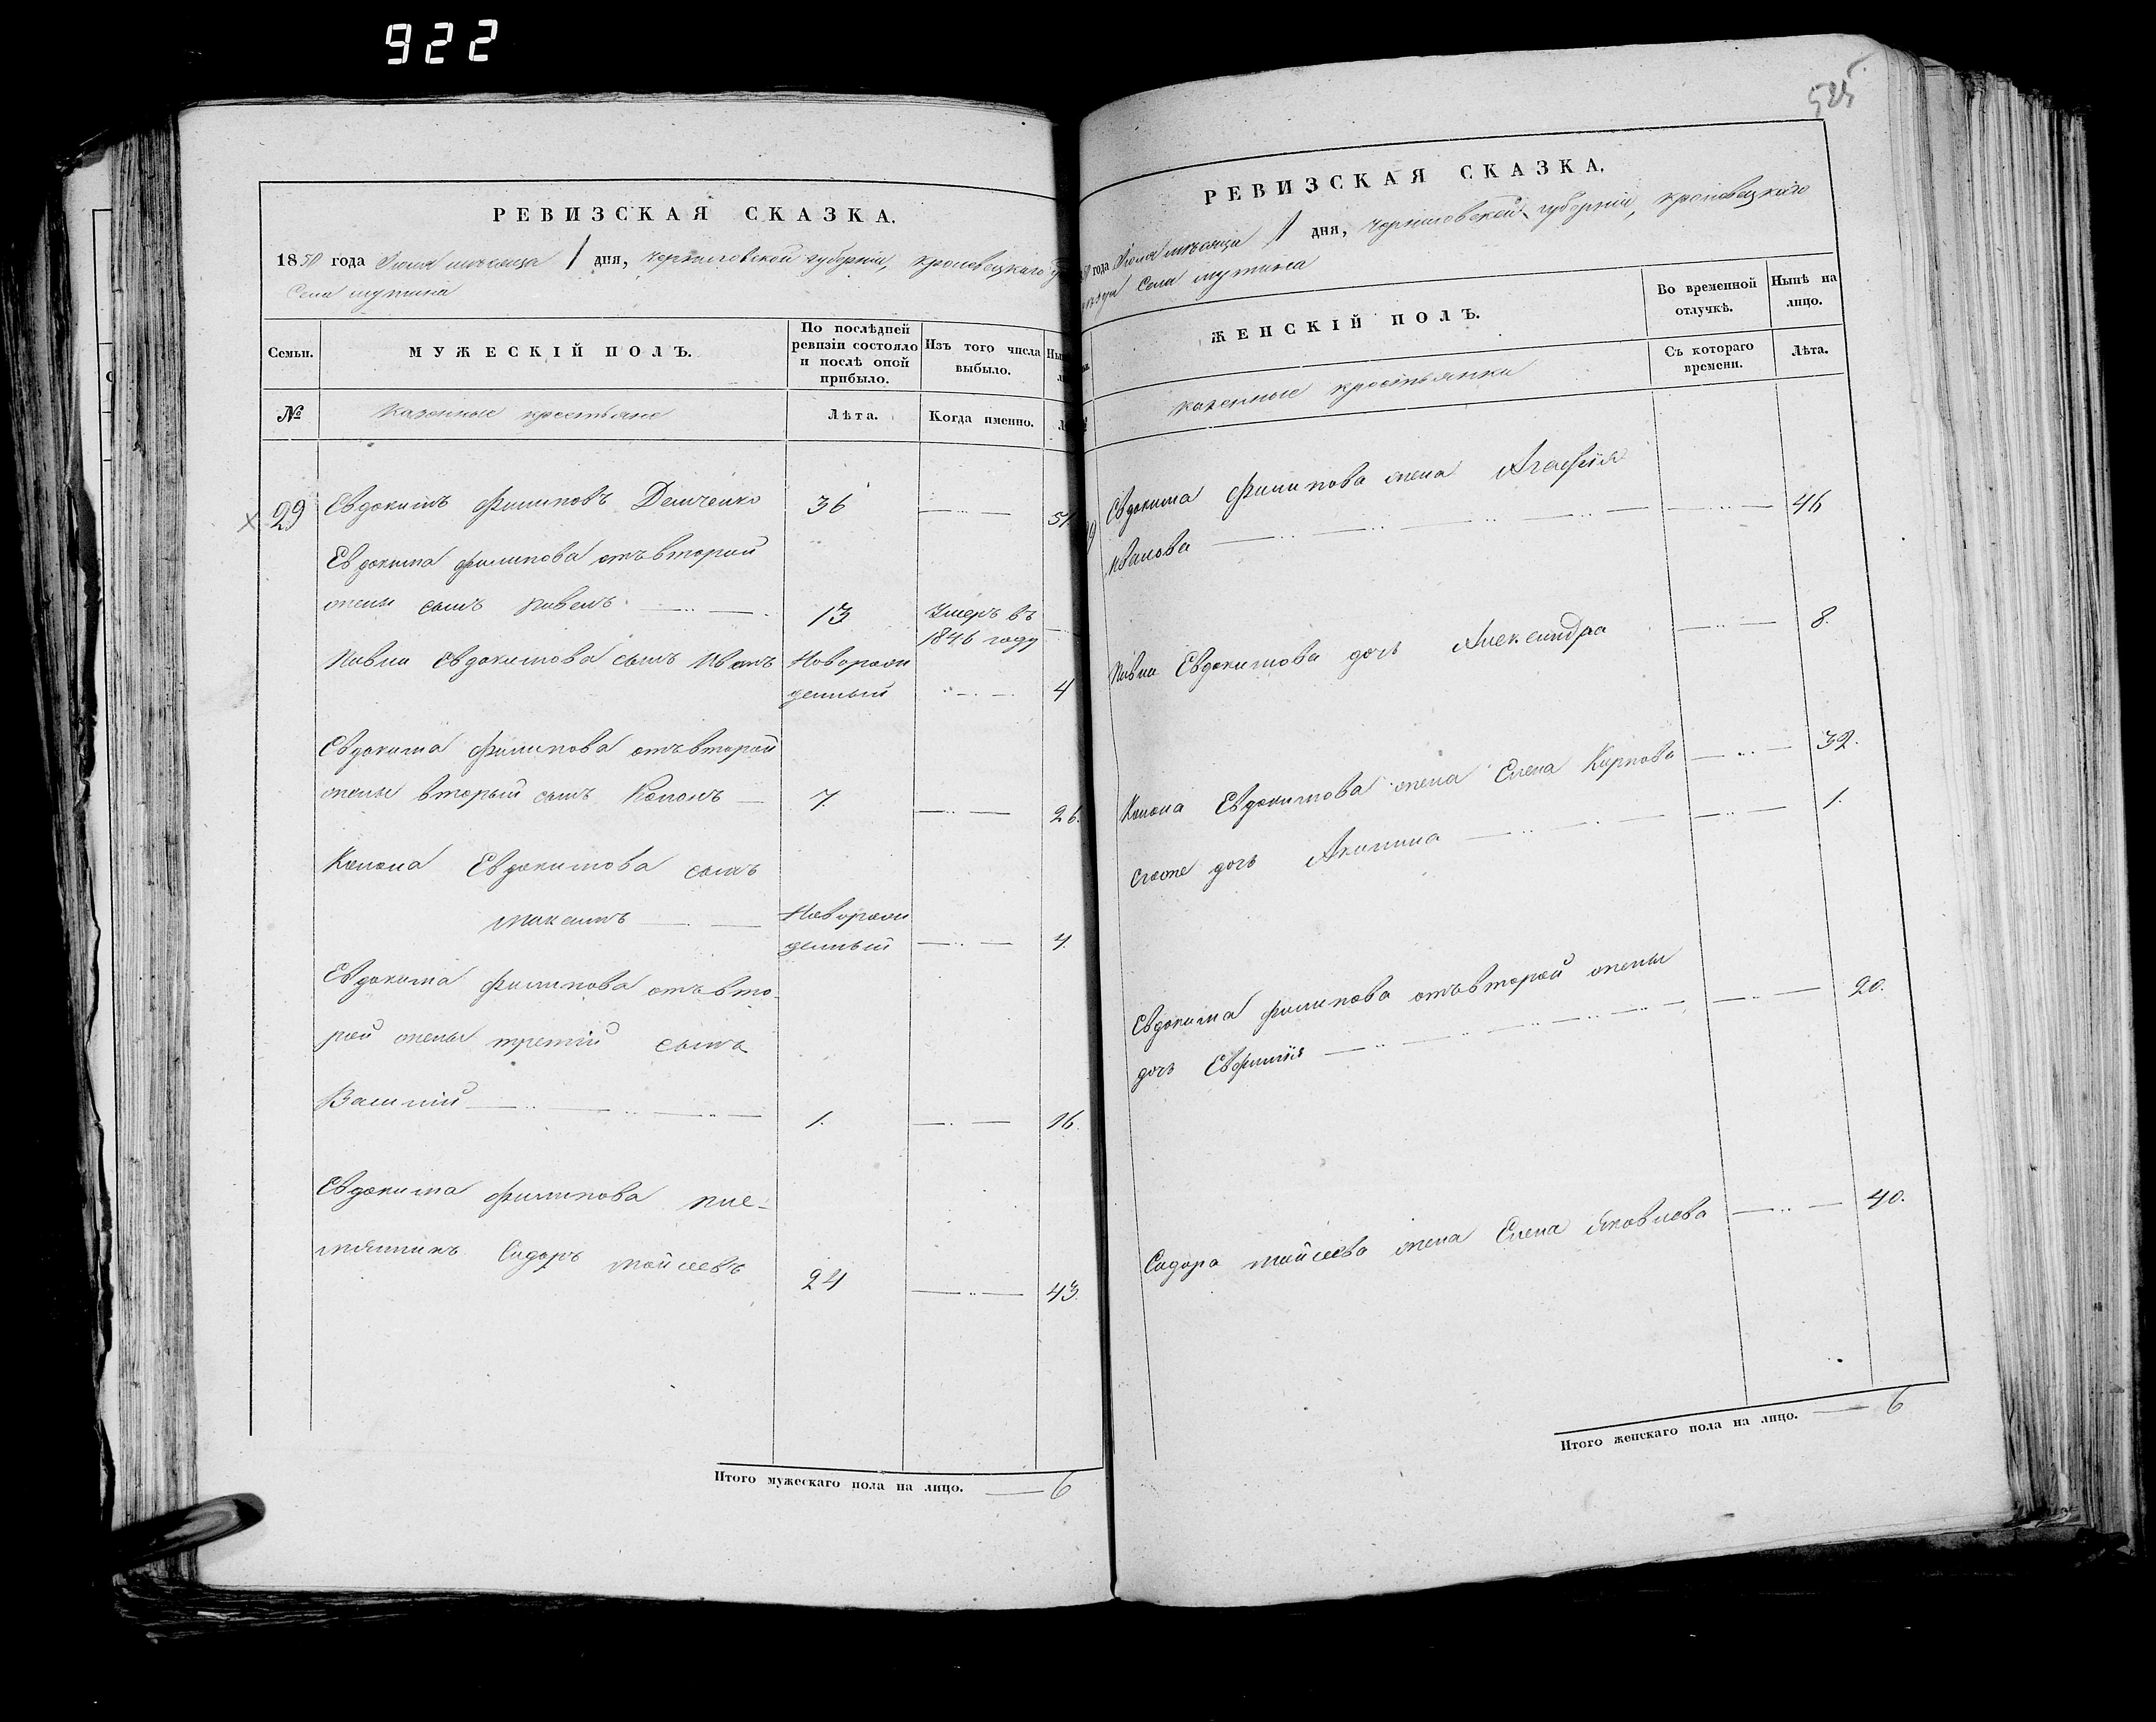 922
РЕВИЗСКАЯ СКАЗКА.
1850 года Июля мѣсяца 1 дня, Черниговской губерніи, Кролевецкаго
Села мутина
Семьи.
МУЖЕСКІЙ ПОЛЪ.
По послѣдней ревизіи состояло и послѣ оной прибыло.
Изъ того числа выбыло.
№
Казенные крестьяне
Лѣта.
Когда именно.
29 Евдокимъ Филиповъ Демченко 36 51
Евдокима филипова отъ второй
жены сынъ Павелъ 13 Умеръ въ 1846 году
Павла Евдокимова сынъ Иванъ Новорожденный 4
Евдокима Филипова отъ второй
жены вторый сынъ Кононъ 7 26.
Конона Евдокимова сынъ
Максимъ Новорожденный 4.
Евдокима Филипова отъ вто-
рой жены третій сынъ
Василій 1. 16.
Евдокима Филипова пле-
мянникъ Сидоръ Мойсеевъ 24 43.
Итого мужескаго пола на лицо. 6
525
РЕВИЗСКАЯ СКАЗКА.
года Июля мѣсяца 1 дня, Черниговской губерніи, Кролевецкаго
уѣзда Села мутина
ЖЕНСКІЙ ПОЛЪ.
Во временной отлучкѣ.
Нынѣ на лицо.
казенные крестьянки
Съ котораго времени.
Лѣта.
Евдокима Филипова жена Агафія
Иванова 46
Павла Евдокимова дочь Александра 8.
Конона Евдокимова жена Елена Карпова 32.
Егоже дочь Акилина 1.
Евдокима Филипова отъ второй жены
дочь Евфимія 20.
Сидора Мойсеева жена Елена Яковлева 40.
Итого женскаго пола на лицо. 6